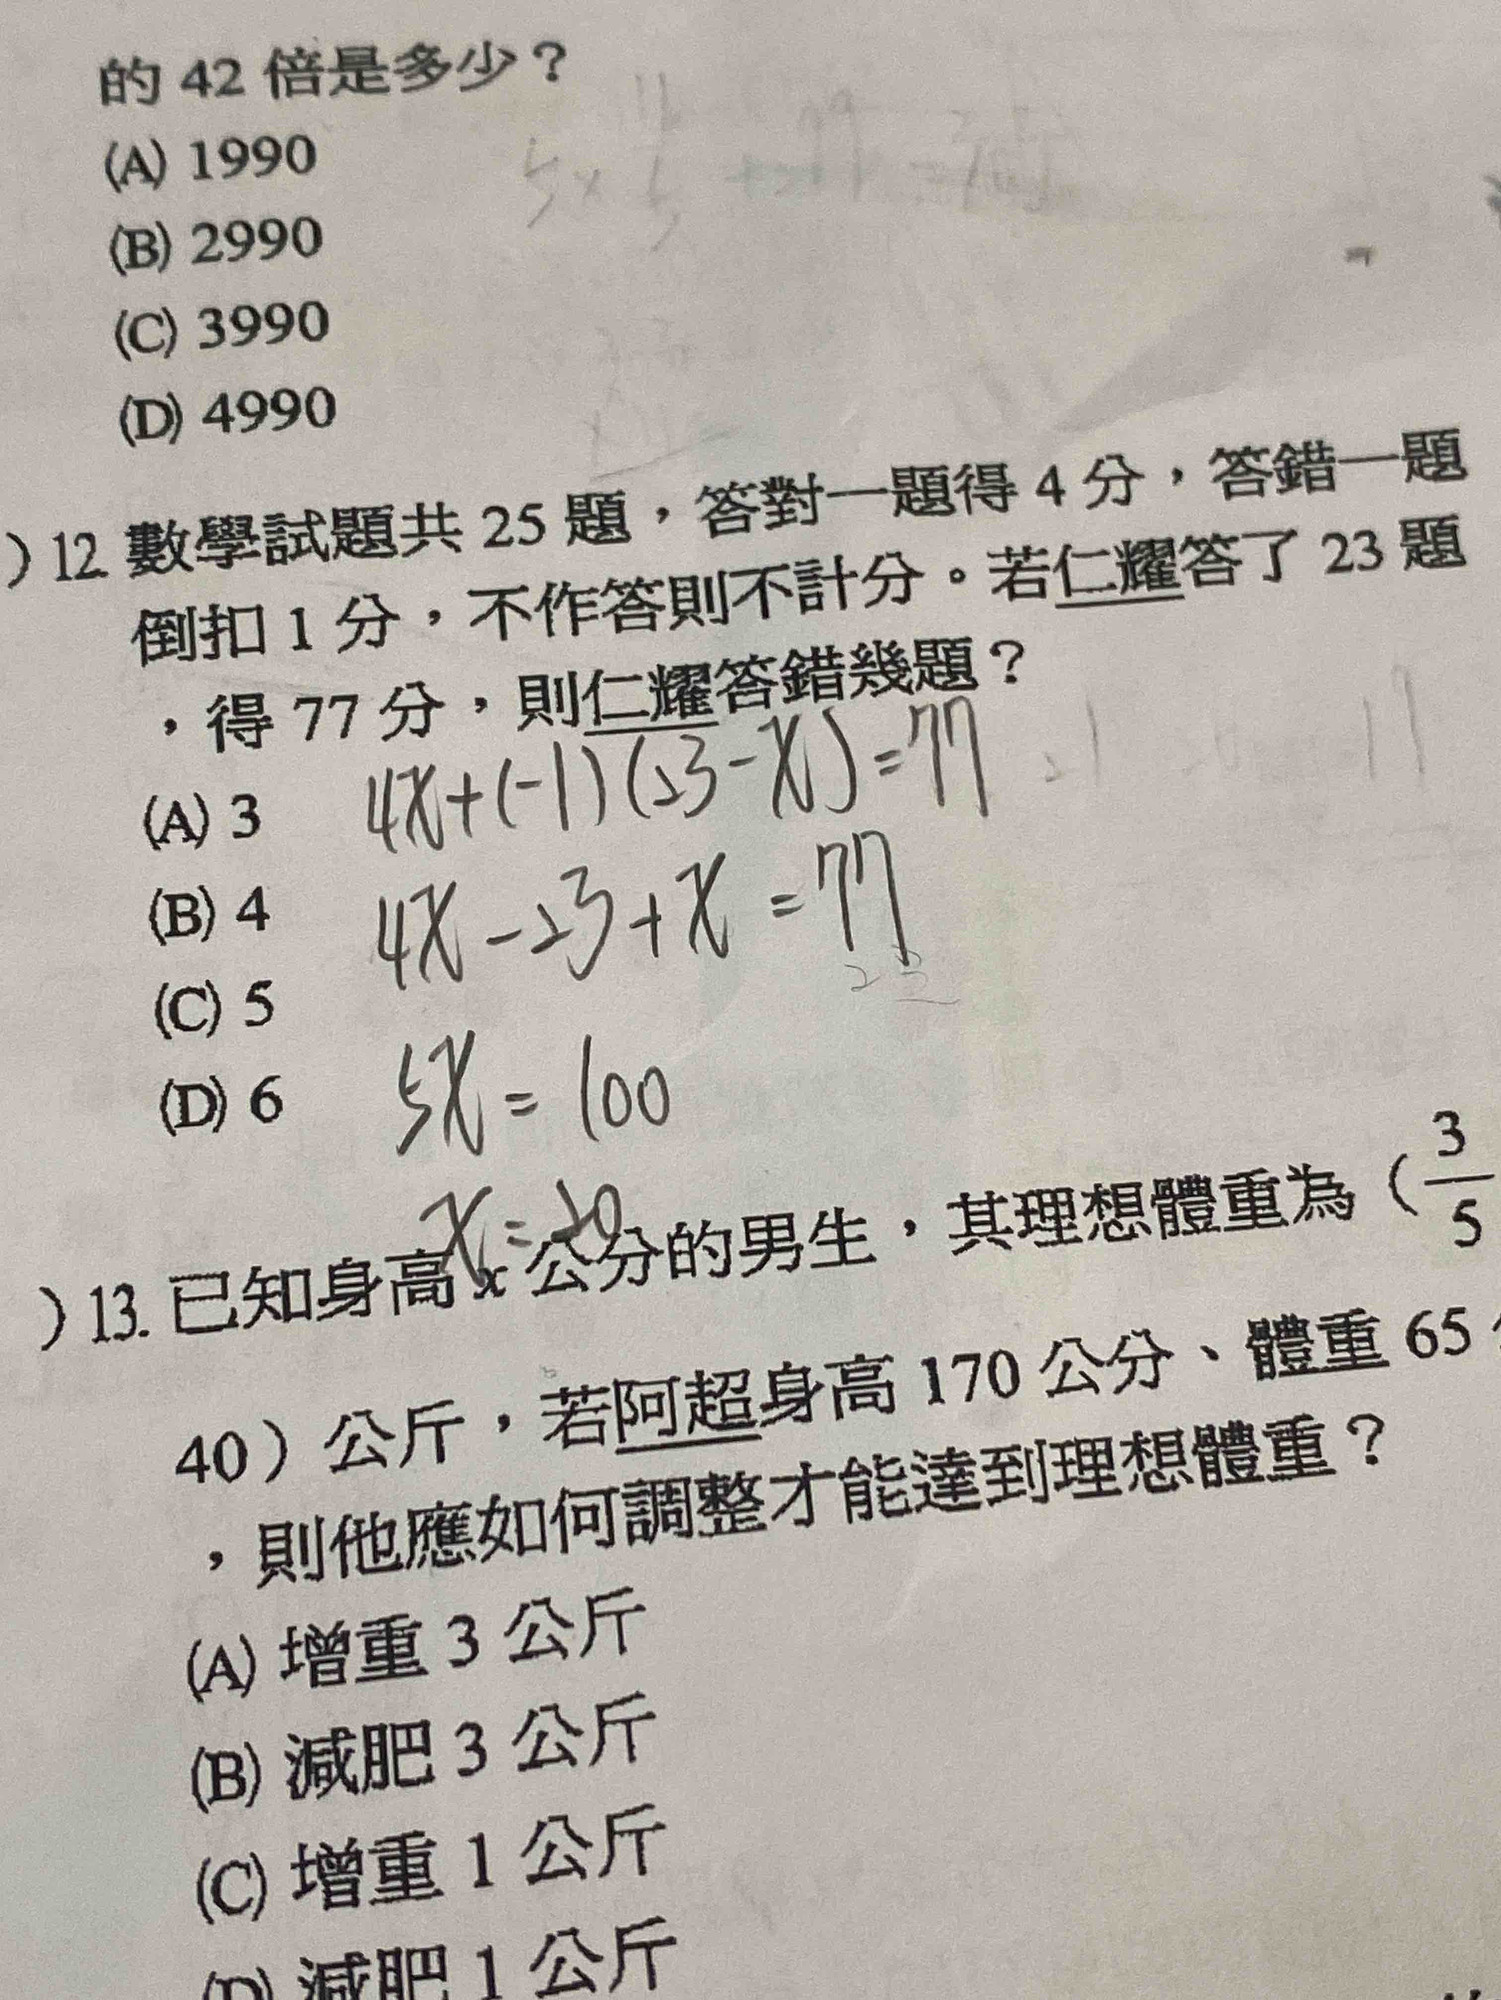 的 42 倍是多少？
(A) 1990
(B) 2990
(C) 3990
(D) 4990
）12. 數學試題共 25 題，答對一題得 4 分，答錯一題
倒扣 1 分，不作答則不計分。若仁耀答了 23 題
，得 77 分，則仁耀答錯幾題？
4x+(-1)(23-x)=77
(A) 3
4x-23+x=77
(B) 4
23
(C) 5
5x=100
(D) 6
x=20
）13. 已知身高 x 公分的男生，其理想體重為（3/5
40）公斤，若阿超身高 170 公分、體重 65
，則他應如何調整才能達到理想體重？
(A) 增重 3 公斤
(B) 減肥 3 公斤
(C) 增重 1 公斤
(D) 減肥 1 公斤